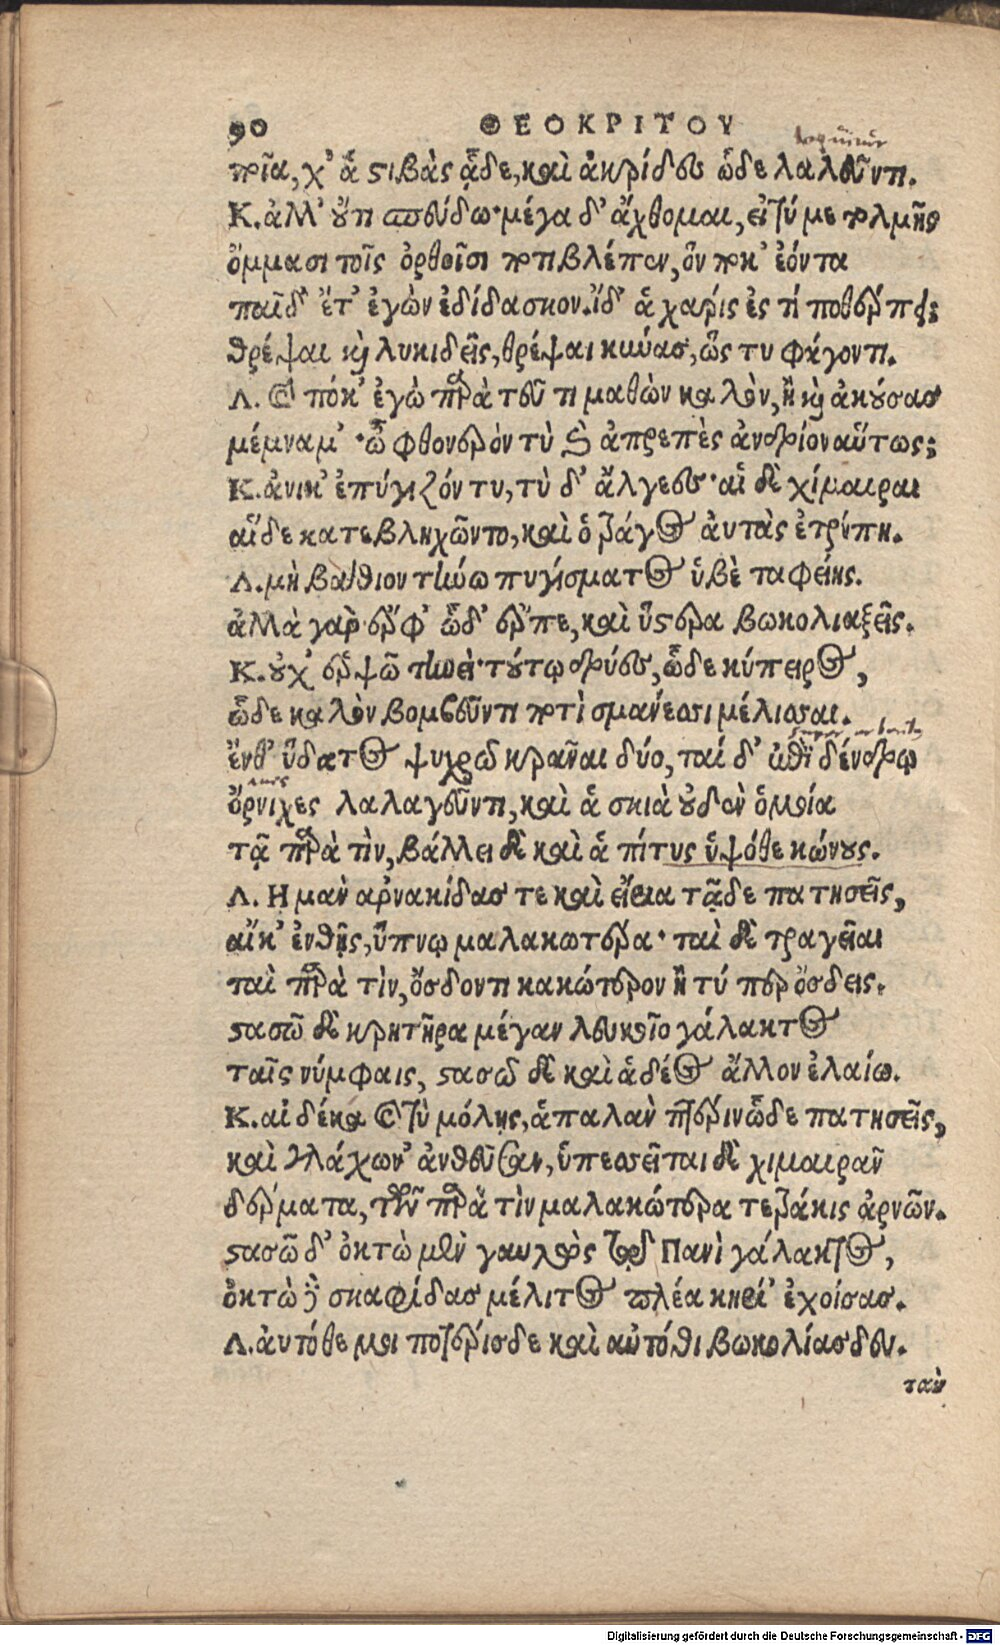 90 ΘΕΟΚΡΙΤΟΥ
ποία, χ' ἁ στιβὰς ᾇδε, καὶ ἀκρίδες ὧδε λαλεῦντι.
Κ. ἀλλ' οὔτι σπεύδω· μέγα δ' ἄχθομαι, εἰ τύ με τολμῇς
ὄμμασι τοῖς ὀρθοῖσι ποτιβλέπεν, ὃν ποκ' ἐόντα
παῖδ' ἔτ' ἐγὼν ἐδίδασκον. ἴδ' ἁ χάρις ἐς τί ποθέρπει;
θρέψαι καὶ λυκιδεῖς, θρέψαι κύνας, ὥς τυ φάγοντι.
Λ. Καὶ πόκ' ἐγὼ παρὰ τεῦ τι μαθὼν καλὸν, ἢ καὶ ἀκούσας
μέμναμ'· ὦ φθονερὸν τὺ καὶ ἀπρεπὲς ἀνδρίον αὕτως;
Κ. ἁνίκ' ἐπύγιζόν τυ, τὺ δ' ἄλγεες· αἱ δὲ χίμαιραι
αἵδε κατεβληχῶντο, καὶ ὁ τράγος αὐτὰς ἐτρύπη.
Λ. μὴ βάθιον τήνω πυγίσματος ὑβὲ ταφείης.
ἀλλὰ γὰρ ἕρφ' ὧδ' ἕρπε, καὶ ὕστερα βωκολιαξεῖς.
Κ. οὐχ ἑρψῶ τηνεί· τούτῳ δρύες, ὧδε κύπειρος,
ὧδε καλὸν βομβεῦντι ποτὶ σμάνεσσι μέλισσαι.
ἔνθ' ὕδατος ψυχρῶ κρᾶναι δύο, ταί δ' ἐπὶ δένδρῳ
ὄρνιχες λαλαγεῦντι, καὶ ἁ σκιὰ οὐδὲν ὁμοία
τᾷ παρὰ τὶν, βάλλει δὲ καὶ ἁ πίτυς ὑψόθε κώνους.
Λ. Η μὰν ἀρνακίδας τε καὶ εἴρια τᾷδε πατησεῖς,
αἴκ' ἐνθῇς, ὕπνῳ μαλακωτέρα· ταὶ δὲ τραγεῖαι
ταὶ παρὰ τὶν, ὄσδοντι κακώτερον ἢ τύ περ ὄσδεις.
στασῶ δὲ κρητῆρα μέγαν λευκοῖο γάλακτος
ταῖς νύμφαις, στασῶ δὲ καὶ ἁδέος ἄλλον ἐλαίω.
Κ. αἰ δέ κα καὶ τὺ μόλης, ἁπαλὰν πτέριν ὧδε πατησεῖς,
καὶ γλάχων' ἀνθεῦσαν, ὑπεσσεῖται δὲ χιμαιρᾶν
δέρματα, τῶν παρὰ τὶν μαλακώτερα τετράκις ἀρνῶν.
στασῶ δ' ὀκτὼ μὲν γαυλὼς τῷ Πανὶ γάλακτος,
ὀκτὼ δὲ σκαφίδας μέλιτος πλέα κηρί' ἐχοίσας.
Λ. αὐτόθε μοι ποτέρισδε καὶ αὐτόθι βωκολιάσδευ.
τὰν
Digitalisierung gefördert durch die Deutsche Forschungsgemeinschaft - DFG